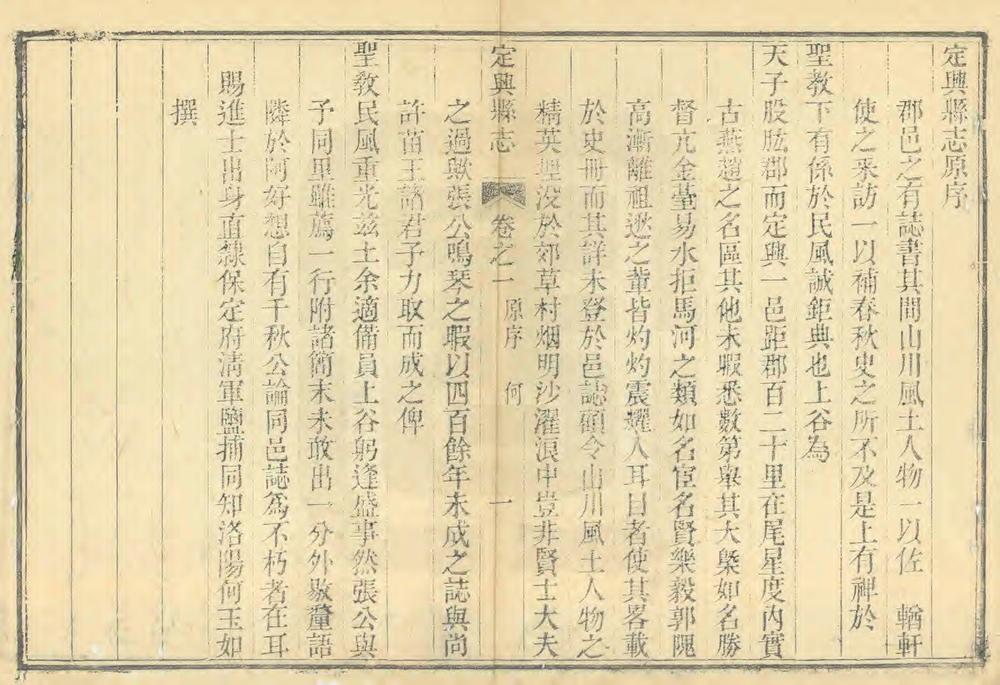 定興縣志原序
郡邑之有誌書其間山川風土人物一以佐 輶軒
使之采訪一以補春秋史之所不及是上有裨於
聖教下有係於民風誠鉅典也上谷為
天子股肱郡而定興一邑距郡百二十里在尾星度內實
古燕趙之名區其他未暇悉數第舉其大槩如名勝
督亢金臺易水拒馬河之類如名宦名賢樂毅郭隗
高漸離祖逖之輩皆灼灼震耀人耳目者使其畧載
於史冊而其詳未登於邑誌顧令山川風土人物之
精英埋没於郊草村烟明沙濯浪中豈非賢士大夫
定興縣志 卷之一 原序 何 一
之過歟張公鳴琴之暇以四百餘年未成之誌與尚
許苗王諸君子力取而成之俾
聖敎民風重光兹土余適備員上谷躬逢盛事然張公與
予同里雖薦一行附諸簡末未敢出一分外㪣釐語
隣於阿好想自有千秋公論同邑誌為不朽者在耳
賜進士出身直隸保定府清軍鹽捕同知洛陽何玉如
撰